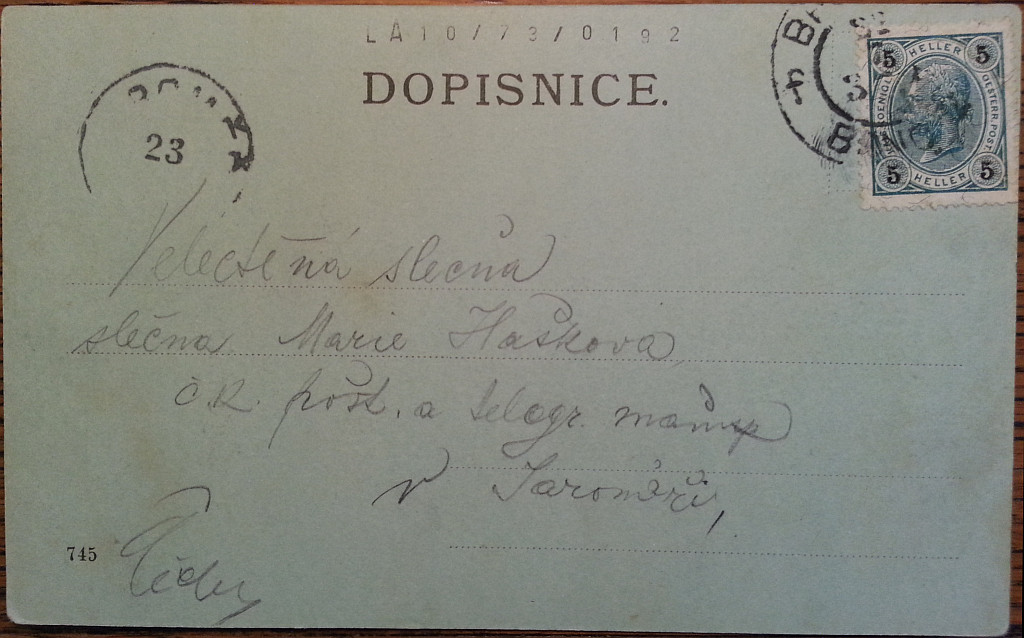 LA10/73/0192
DOPISNICE.
23
5 HELLER 5
OESTERR. POST.
5 HELLER 5
Velectěná slečna
slečna Marie Hašková,
c.k. pošt. a telegr. manip
v Jaroměři,
745